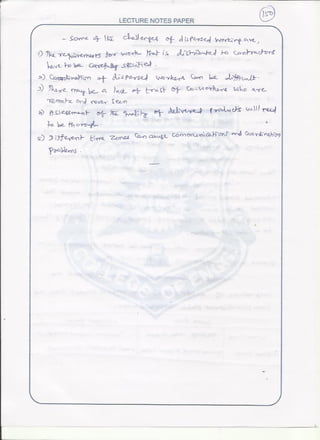 150
LECTURE NOTES PAPER
- Some of the challenges of dispersed working are,
1) The requirements for work that is distributed to contractors
have to be carefully specified.
2) Coordination of dispersed workers can be difficult.
3) There may be a lack of trust of co-workers who are
remote and never seen
4) Assessment of the quality of delivered products will need
to be thorough
5) Different time zones can cause communication and coordination
problems.
COLLEGE OF ENGG